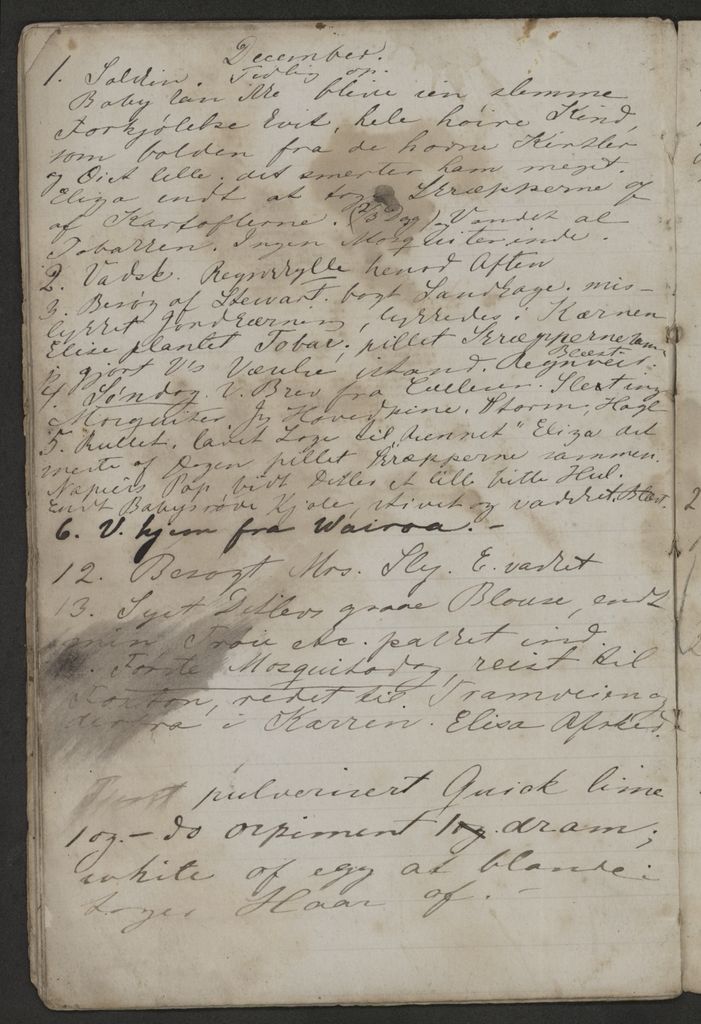 December.
1. Solskin. Tidlig op.
Baby kan ikke blive sin slemme
Forkjølelse kvit, hele høire Kind,
som bolden fra de haarde Kirtler
og Øiet lille. det smerter ham meget.
Eliza endt at tage Skræpperne op
af Kartoflerne. Vandet al
Tobakken. Ingen Mosquiter inde.
2. Vadsk. Regnskylle henad Aften
3. Besøg af Stewart. bagt Sandkage. mis-
lykket Jordkærning, lykkedes i Kærnen
Elise plantet Tobak, pillet Skræpperne sam
gjort V's Værelse istand. Regnveir.
Blæst
4. Søndag. V. Brev fra Slet ingen
Mosquiter. Jeg Hovedpine. Storm. Hagl
5. Rullet. lavet Låge til "kennet" Eliza det
meste af Dagen pillet Skræpperne sammen.
Napiers Pap bidt Ditlev et lille bitte Hul.
Endt Babys røde Kjole, stivet og vadsket. Blæst.
6. V. hjem fra Wairoa. -
12. Besøgt Mrs. Sly. E. vasket
13. Syet Ditlevs graae Blouse, endt
min Trøie etc. pakket ind.
Første Mosquitodag, reist til
Foxton, redet til Tramveien og
derfra i Karren. Elisa Afsked.
pulveriseret Quick lime
1 oz. - do orpiment dram;
white of egg at blande.
tager Haar af. -